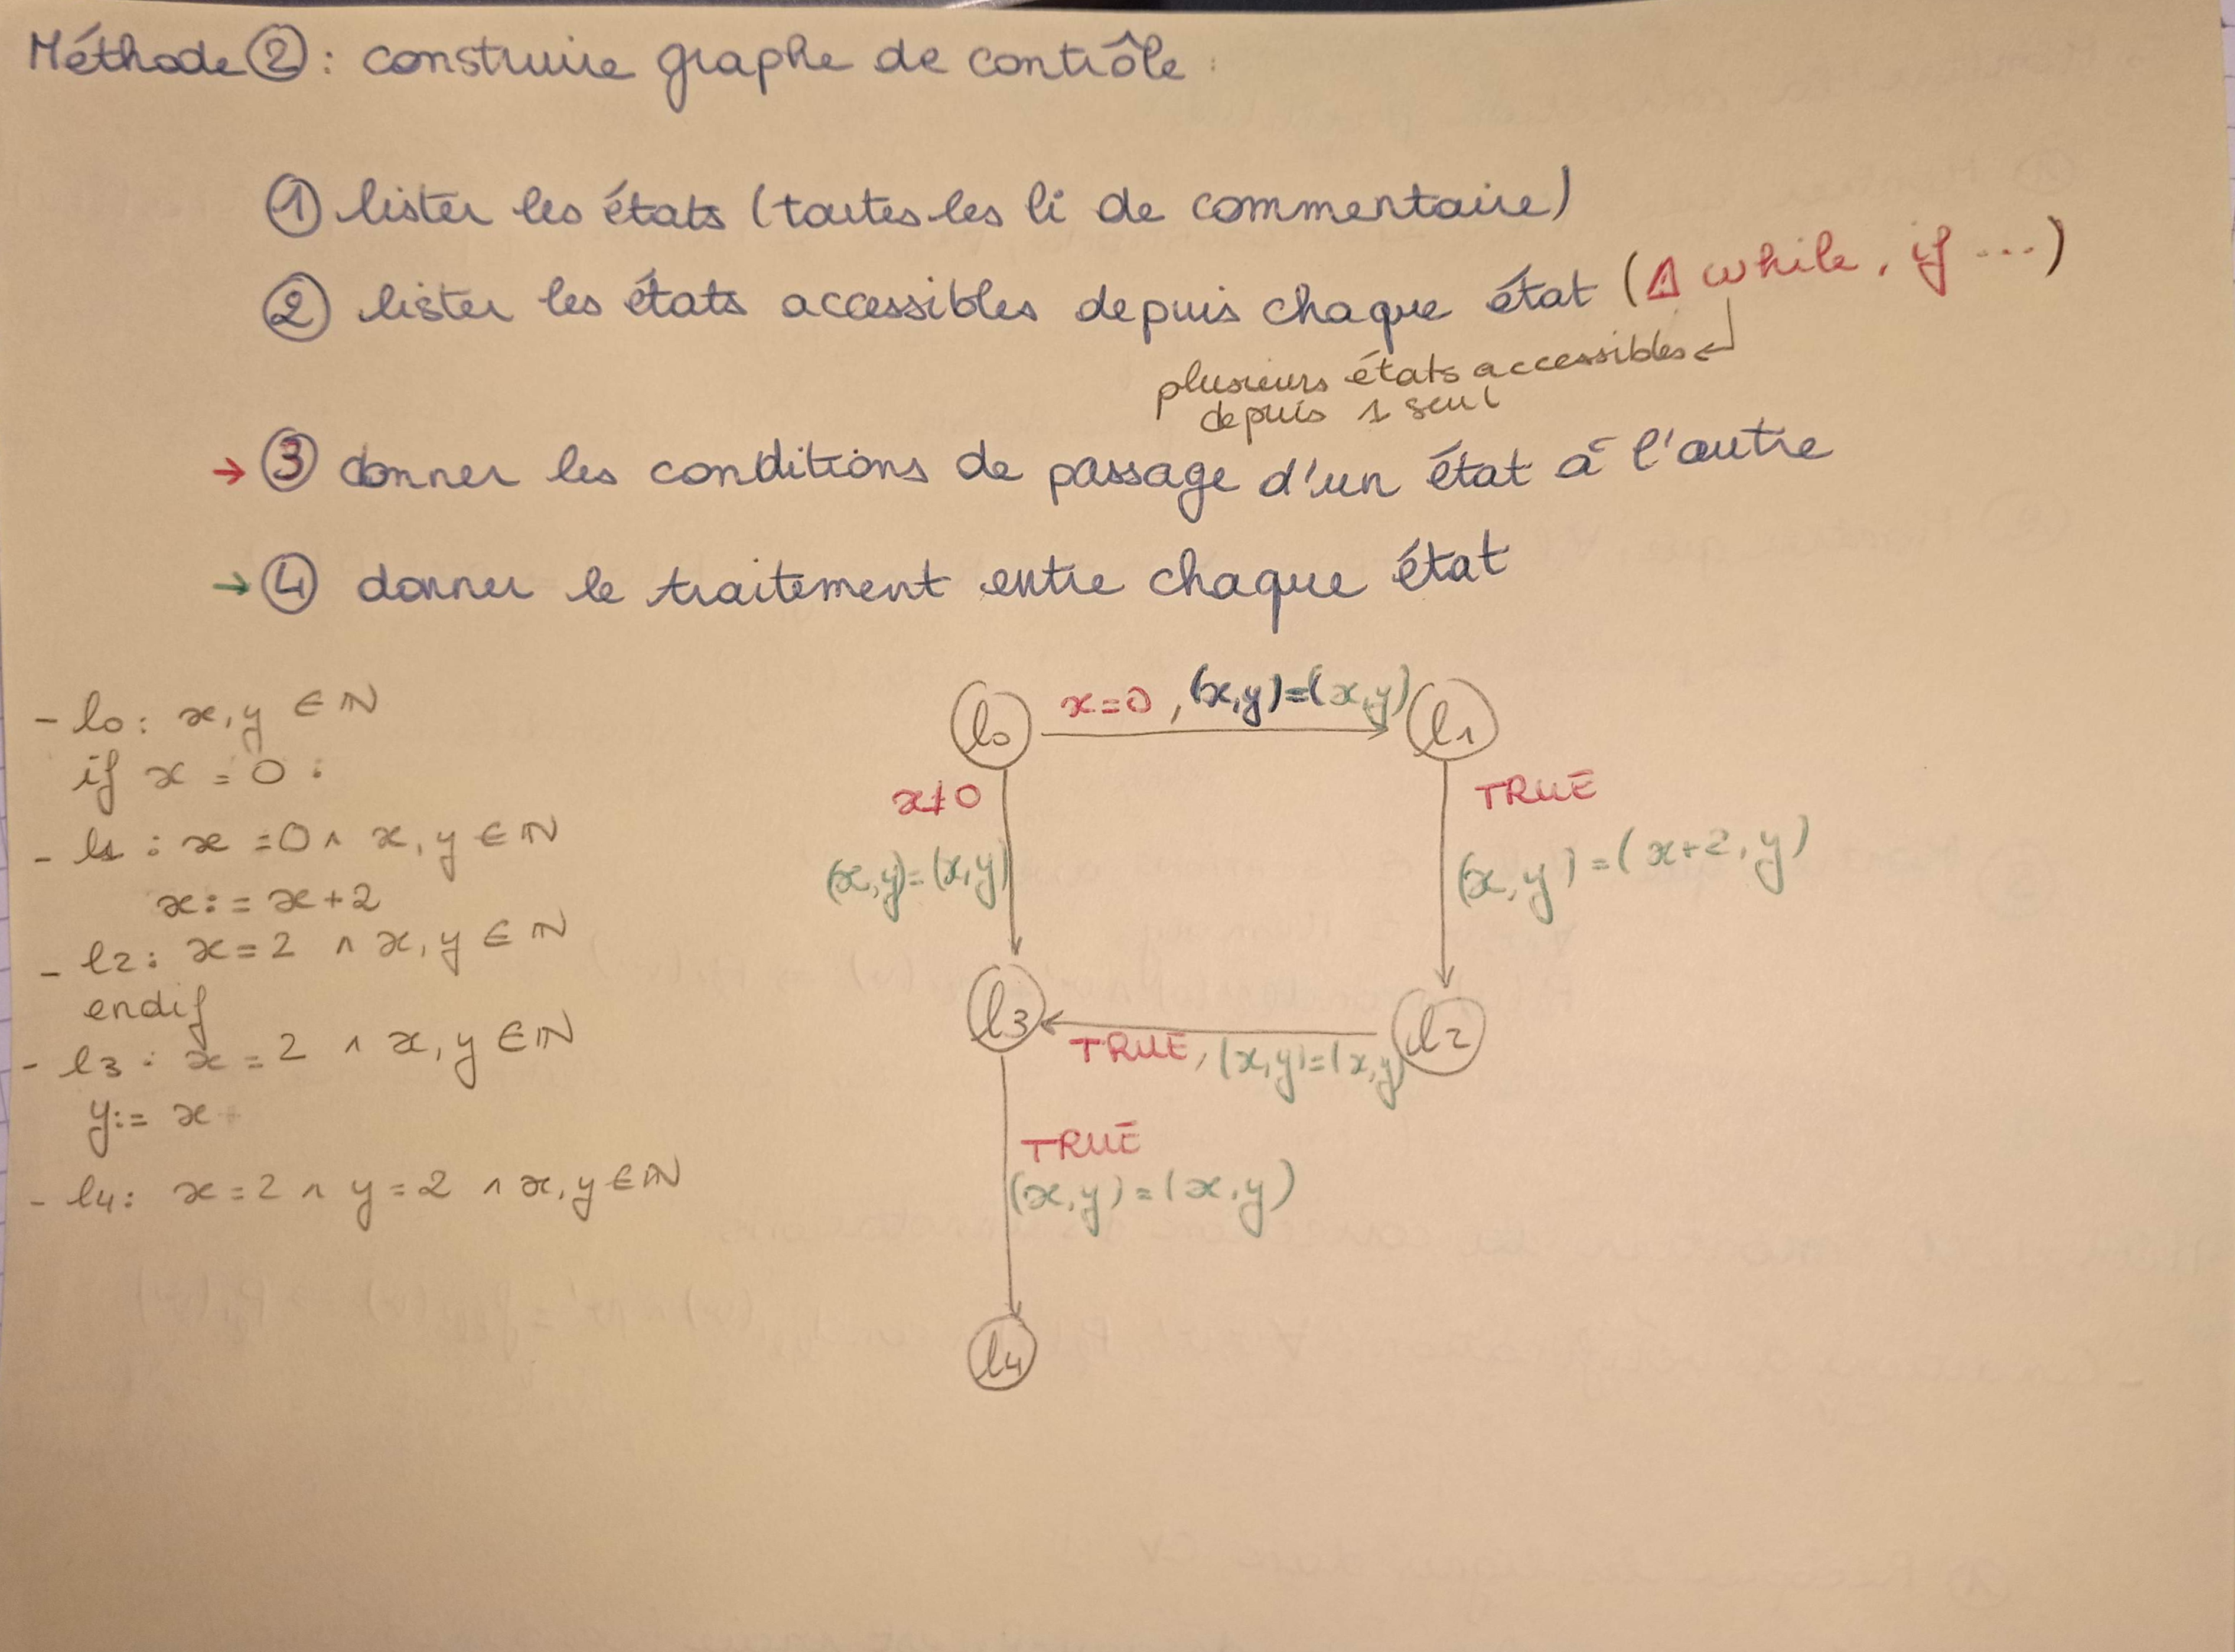 Méthode ② : construire graphe de contrôle :
① lister les états (toutes les li de commentaire)
② lister les états accessibles depuis chaque état (⚠ while, if ...)
plusieurs états accessibles ↵
depuis 1 seul
→ ③ donner les conditions de passage d'un état à l'autre
→ ④ donner le traitement entre chaque état
- l0 : x, y ∈ ℕ
if x = 0 :
- l1 : x = 0 ∧ x, y ∈ ℕ
x := x+2
- l2 : x = 2 ∧ x, y ∈ ℕ
endif
- l3 : x = 2 ∧ x, y ∈ ℕ
y := x
- l4 : x = 2 ∧ y = 2 ∧ x, y ∈ ℕ
l0
x=0, (x,y)=(x,y)
l1
x≠0
(x,y)=(x,y)
TRUE
(x,y)=(x+2,y)
l3
TRUE, (x,y)=(x,y)
l2
TRUE
(x,y)=(x,y)
l4